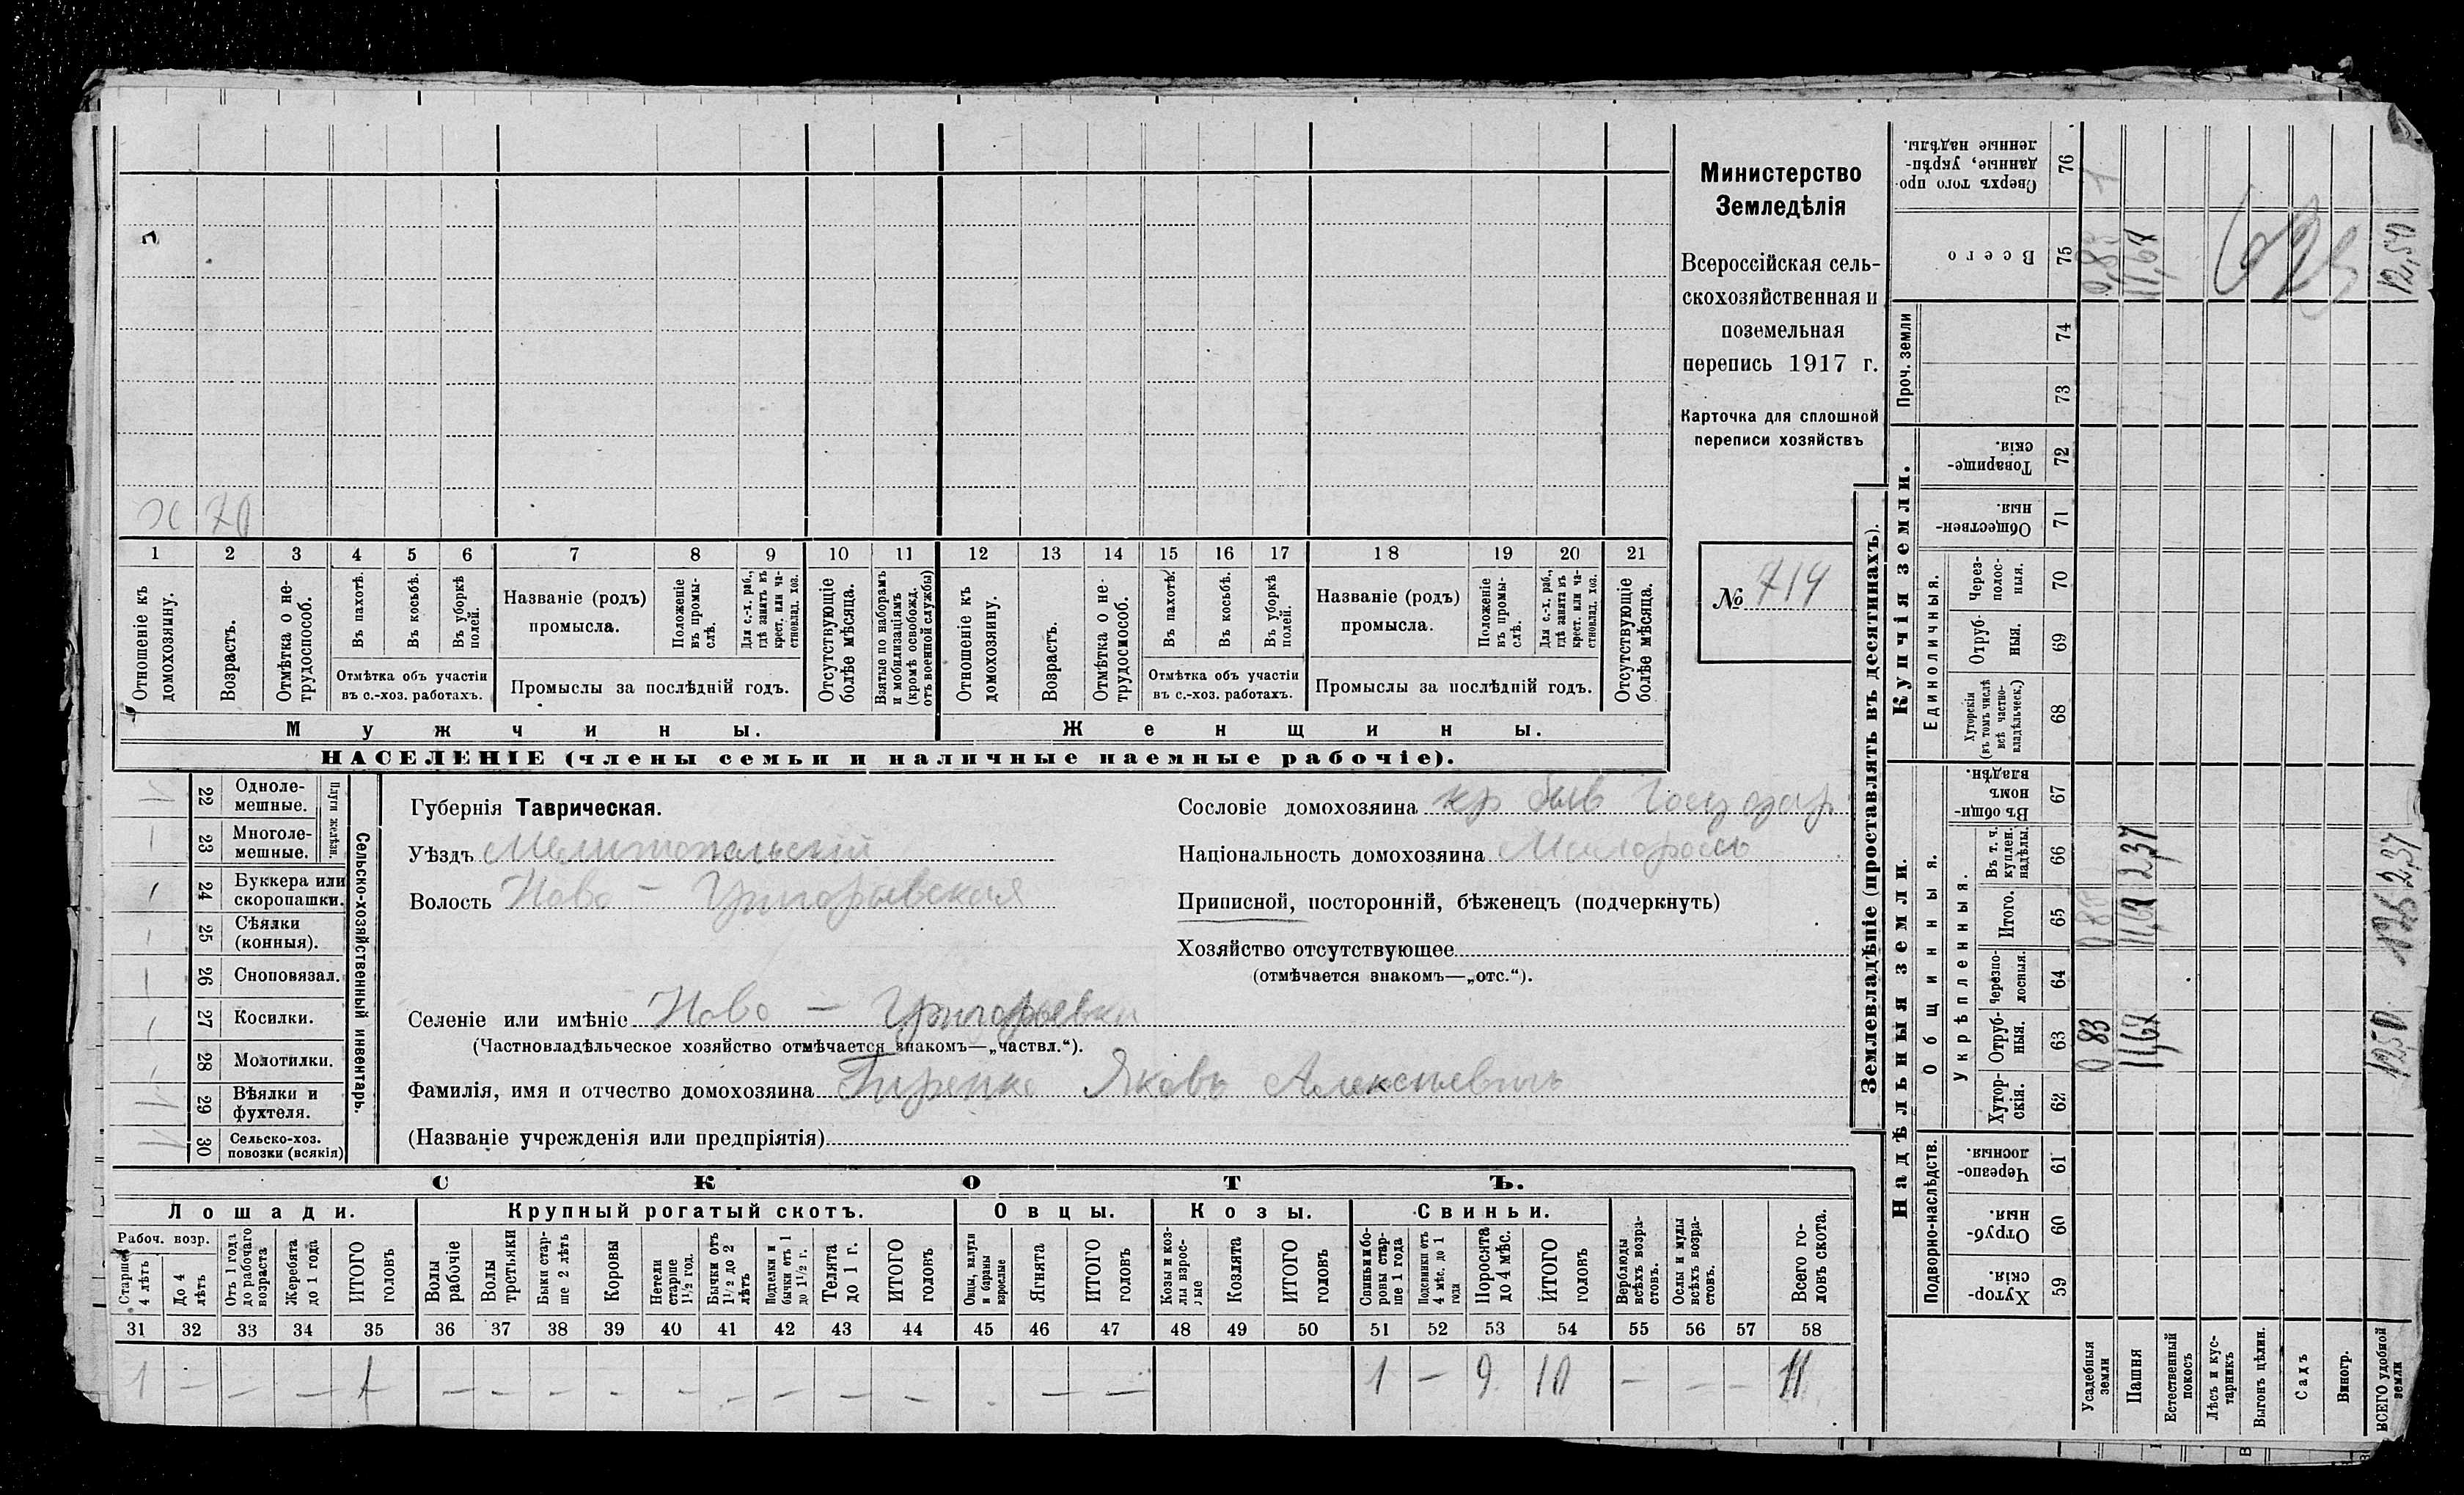 х 70
1 2 3 4 5 6 7 8 9 10 11 12 13 14 15 16 17 18 19 20 21
Отношеніе къ домохозяину.
Возрастъ.
Отмѣтка о не-
трудоспособ.
Въ пахотѣ.
Въ косьбѣ.
Въ уборкѣ
полей.
Отмѣтка объ участіи
въ с.-хоз. работахъ.
Названіе (родъ)
промысла.
Положеніе
въ промы-
слѣ.
Для с.-х. раб.,
гдѣ занятъ въ
крест. или ча-
стновлад. хоз.
Промыслы за послѣдній годъ.
Отсутствующіе
болѣе мѣсяца.
Взятые по наборамъ
и мобилизаціямъ
(кромѣ освобожд.
отъ военной службы)
Отношеніе къ
домохозяину.
Возрастъ.
Отмѣтка о не-
трудоспособ.
Въ пахотѣ.
Въ косьбѣ.
Въ уборкѣ
полей.
Отмѣтка объ участіи
въ с.-хоз. работахъ.
Названіе (родъ)
промысла.
Положеніе
въ промы-
слѣ.
Для с.-х. раб.,
гдѣ занята въ
крест. или ча-
стновлад. хоз.
Промыслы за послѣдній годъ.
Отсутствующіе
болѣе мѣсяца.
Мужчины.
Женщины.
НАСЕЛЕНІЕ (члены семьи и наличные наемные рабочіе).
Министерство
Земледѣлія
Всероссійская сель-
скохозяйственная и
поземельная
перепись 1917 г.
Карточка для сплошной
переписи хозяйствъ
№ 714
22 Одноле-
мешные.
23 Многоле-
мешные.
Плуги желѣзн.
24 Буккера или
скоропашки.
25 Сѣялки
(конныя).
26 Сноповязал.
27 Косилки.
28 Молотилки.
29 Вѣялки и
фухтеля.
30 Сельско-хоз.
повозки (всякія)
Сельско-хозяйственный инвентарь.
Губернія Таврическая.
Уѣздъ Мелитопольскій
Волость Ново - Григорьевская
Селеніе или имѣніе Ново - Григорьевка
(Частновладѣльческое хозяйство отмѣчается знакомъ—„частвл.“).
Фамилія, имя и отчество домохозяина Гиренко Яковъ Алексѣевичъ
(Названіе учрежденія или предпріятія)
Сословіе домохозяина кр быв Государ
Національность домохозяина Малоросъ
Приписной, посторонній, бѣженецъ (подчеркнуть)
Хозяйство отсутствующее
(отмѣчается знакомъ—„отс.“).
СКОТЪ.
Лошади.
Рабоч. возр.
Старше
4 лѣтъ
До 4
лѣтъ
Отъ 1 года
до рабочаго
возраста
Жеребята
до 1 года
ИТОГО
головъ
Крупный рогатый скотъ.
Волы
рабочіе
Волы
третьяки
Быки стар-
ше 2 лѣтъ
Коровы
Нетели
старше
1½ год.
Бычки отъ
1½ до 2
лѣтъ
Подтелки и
бычки отъ 1
до 1½ г.
Телята
до 1 г.
ИТОГО
головъ
Овцы.
Овцы, валухи
и бараны
взрослые
Ягнята
ИТОГО
головъ
Козы.
Козы и коз-
лы взрос-
лые
Козлята
ИТОГО
головъ
Свиньи.
Свиньи и бо-
ровы стар-
ше 1 года
Подсвинки отъ
4 мѣс. до 1
года
Поросята
до 4 мѣс.
ИТОГО
головъ
Верблюды
всѣхъ возра-
стовъ.
Ослы и мулы
всѣхъ возра-
стовъ.
Всего го-
ловъ скота.
31 32 33 34 35 36 37 38 39 40 41 42 43 44 45 46 47 48 49 50 51 52 53 54 55 56 57 58
1 — — — 1 — — — — — — — — — — — — 1 — 9 10 — — — 11
Землевладѣніе (проставлять въ десятинахъ).
Надѣльныя земли.
Купчія земли.
Проч. земли
Подворно-наслѣдств.
Общинныя.
Укрѣпленныя.
Единоличныя.
Хутор-
скія. 59
Отруб-
ныя. 60
Черезпо-
лосныя. 61
Хутор-
скія. 62
Отруб-
ныя. 63
Черезпо-
лосныя. 64
Итого. 65
Въ т. ч.
куплен.
надѣлы. 66
Въ общин-
номъ
владѣн. 67
Хуторскія
(въ томъ числѣ
всѣ частно-
владѣльческ.) 68
Отруб-
ныя. 69
Через-
полос-
ныя. 70
Обществен-
ныя. 71
Товарище-
скія. 72
73
74
Всего 75
Сверхъ того про-
данные, укрѣп-
ленные надѣлы. 76
Усадебныя
земли 0 83 0 83 0,83
Пашня 11,67 11,67 2,37 11,67
Естественный
покосъ
Лѣсъ и кус-
тарникъ
Выгонъ цѣлин.
Садъ
Виногр.
ВСЕГО удобной
земли 1250 1250 2,37 12,50